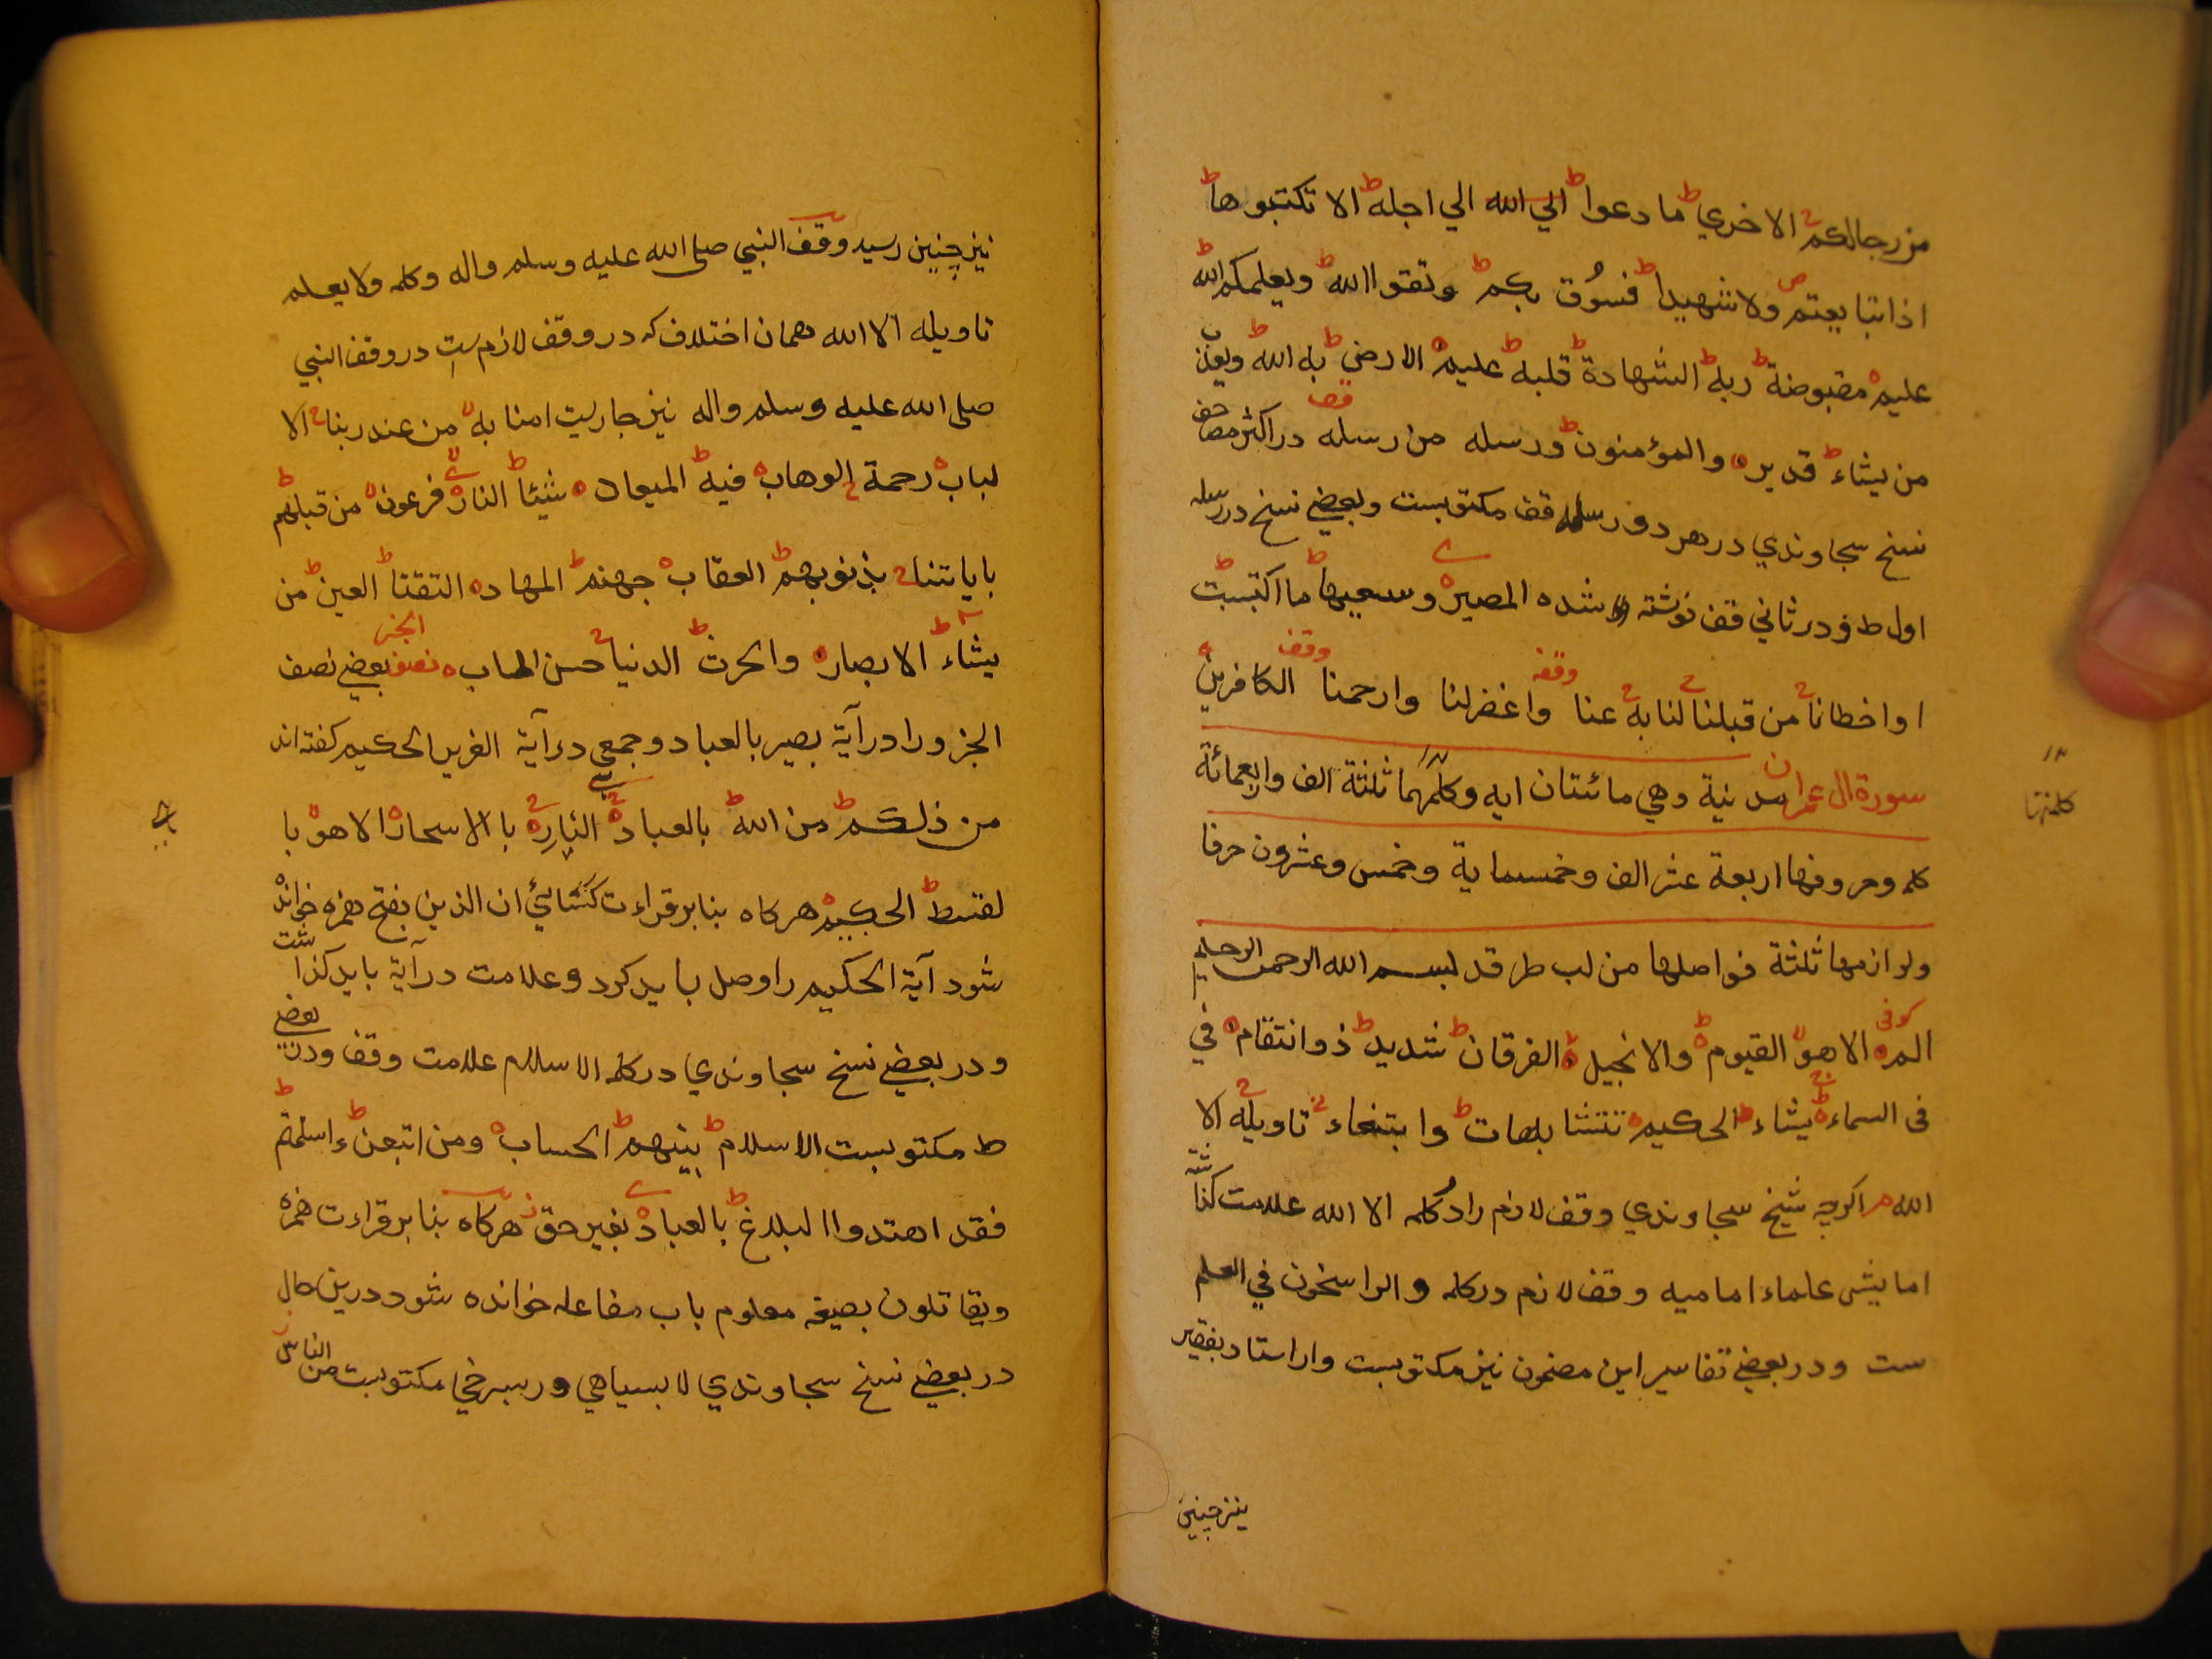 من رجالكم ح الاخري ط ما دعوا ط الي الله الي اجله ط الا تكتبوها ط
اذا تبايعتم ص ولا شهيدا ط فسُوق بكم ط وتقوا الله ط ويعلمكم الله ط
عليم ه مقبوضة ط ربه ط الشهادة ط قلبه ط عليم ه الارض ط به الله ط ويعذب
من يشاء ط قدير ه والمؤمنون ط ورسله من رسله قف در اكثر مصاحف
نسخ سجاوندي در هر دو رسله قف مكتوبست وبعضي نسخ در رسله
اول ط ودر ثاني قف نوشته شده المصير ه وسعيها ط ما اكتسبت ط
او اخطانا ح من قبلنا ح لنا به ح عنا وقفه واغفرلنا وارحمنا وقف الكافرين ه
سورة ال عمران مدنية وهي مائتان ايه وكلمها ثلثة الف واربعمائة
كلمتها
كلمه وحروفها اربعة عشر الف وخمسماية وخمس وعشرون حرفا
ولوازمها ثلثة فواصلها من لب طر قد لبسم الله الرحمن الرحيم
الم ه كوفي الا هو لا القيوم ط والانجيل ه الفرقان ط شديد ط ذو انتقام ه في
في السماء ه يشاء ط الحكيم ه تتشابهات ط وابتغاء تاويله ح الا
الله م اكرچه شيخ سجاوندي وقف لازم را در كلمه الا الله علامت كذاشته
اما پيش علماء اماميه وقف لازم در كلمه والراسخون في العلم
ست ودر بعضي تفاسير اين مضمون نيز مكتوبست واز استاد بفقير
نيز چنين
نيز چنين رسيد وقف النبي صلى الله عليه وسلم واله وكلمه ولا يعلم
تاويله الا الله همان اختلاف كه در وقف لازم ست در وقف النبي
صلى الله عليه وسلم واله نيز جاريست امنا به لا من عند ربنا ح الا
لباب ه رحمة ح الوهاب ه فيه ط الميعاد ه شيئا ط النار ه فرعون لا من قبلهم ط
باياتنا ح بذنوبهم ط العقاب ه جهنم ط المهاد ه التقتا ط العين ط من
يشاء ط الابصار ه والحرث ط الدنيا ح حسن الماب ه نصف الجزء بعضي نصف
الجزو را در آية بصير بالعباد وجمعي در آية العزيز الحكيم كفته اند
من ذلكم ط من الله ط بالعباد ه النار ه بالاسحار ه الا هو لا با
لقسط ط الحكيم ه هر كاه بنا بر قراءت كسائي ان الذين بفتح همزه خوانده
شود آية الحكيم را وصل بايد كرد وعلامت در آية بايد كذاشت
ودر بعضي نسخ سجاوندي در كلمه الاسلام علامت وقف ودر بعضي
ط مكتوبست الاسلام ط بينهم ط الحساب ه ومن اتبعن ط ءاسلمتم ط
فقد اهتدوا البلاغ ط بالعباد ه بغير حق هر كاه بنا بر قراءت حمزه
ويقاتلون بصيغه معلوم باب مفاعله خوانده شود در اين حال
در بعضي نسخ سجاوندي لا بسياهي وز بسرخي مكتوبست من الناس